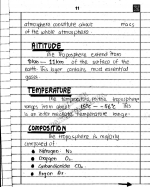 11
atmosphere constitute about mass
of the whole atmosphere
ALTITUDE
The troposphere extend from
8km - 12km of the surface of the
earth this layer contains most essential
gases
TEMPERATURE
The temperature troposphere
range from about 15°C - -56°C this
is an intermediate temperature range
COMPOSITION
The troposphere is majorly
composed of
Nitrogen N₂
Oxygen O₂
Carbondioxide CO₂
Argon Ar